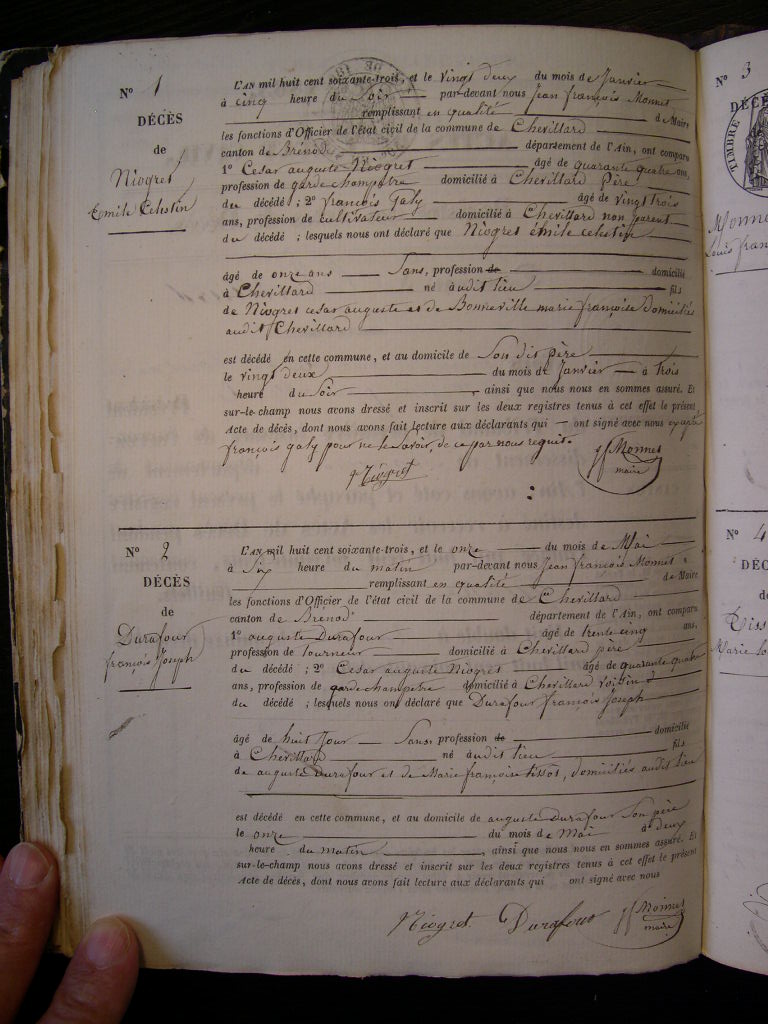 N° 1
DÉCÈS
de
Niogret
Emile Celestin
L'AN mil huit cent soixante-trois, et le vingt deux du mois de Janvier
à cinq heure du Soir par-devant nous Jean françois Monnet
remplissant en qualité de Maire
les fonctions d'Officier de l'état civil de la commune de Chevillard
canton de Brénod département de l'Ain, ont comparu
1° Cesar auguste Niogret âgé de quarante quatre ans,
profession de garde champetre domicilié à Chevillard Père
du décédé ; 2° françois Galy âgé de vingt trois
ans, profession de cultivateur domicilié à Chevillard non parent
du décédé ; lesquels nous ont déclaré que Niogret émile celestin
âgé de onze ans Sans, profession de domicilié
à Chevillard né audit lieu fils
de Niogret cesar auguste et de Bonneville marie françoise domiciliés
audit Chevillard
est décédé en cette commune, et au domicile de Son dit père
le vingt deux du mois de Janvier à trois
heure du Soir ainsi que nous nous en sommes assuré. Et
sur-le-champ nous avons dressé et inscrit sur les deux registres tenus à cet effet le présent
Acte de décès, dont nous avons fait lecture aux déclarants qui ont signé avec nous excepté
françois galy pour ne le savoir, de ce par nous requis.
Niogret
jf Monnet
maire
N° 2
DÉCÈS
de
Durafour
françois Joseph
L'AN mil huit cent soixante-trois, et le onze du mois de Mai
à Six heure du matin par-devant nous Jean francois Monnet
remplissant en qualité de Maire
les fonctions d'Officier de l'état civil de la commune de Chevillard
canton de Brénod département de l'Ain, ont comparu
1° auguste Durafour âgé de trente cinq ans,
profession de tourneur domicilié à Chevillard père
du décédé ; 2° Cesar auguste Niogret âgé de quarante quatre
ans, profession de garde champetre domicilié à Chevillard voisin
du décédé ; lesquels nous ont déclaré que Durafour françois Joseph
âgé de huit Jour Sans profession de domicilié
à Chevillard né audit lieu fils
de auguste Durafour et de Marie françoise tissot, domiciliés audit lieu
est décédé en cette commune, et au domicile de auguste Durafour Son père
le onze du mois de Mai à deux
heure du matin, ainsi que nous nous en sommes assuré. Et
sur-le-champ nous avons dressé et inscrit sur les deux registres tenus à cet effet le présent
Acte de décès, dont nous avons fait lecture aux déclarants qui ont signé avec nous
Niogret Durafour jf Monnet
maire
N° 3
DÉCÈ
TIMBRE
Monne
Louis fran
N° 4
DÉC
de
Tiss
Marie lo